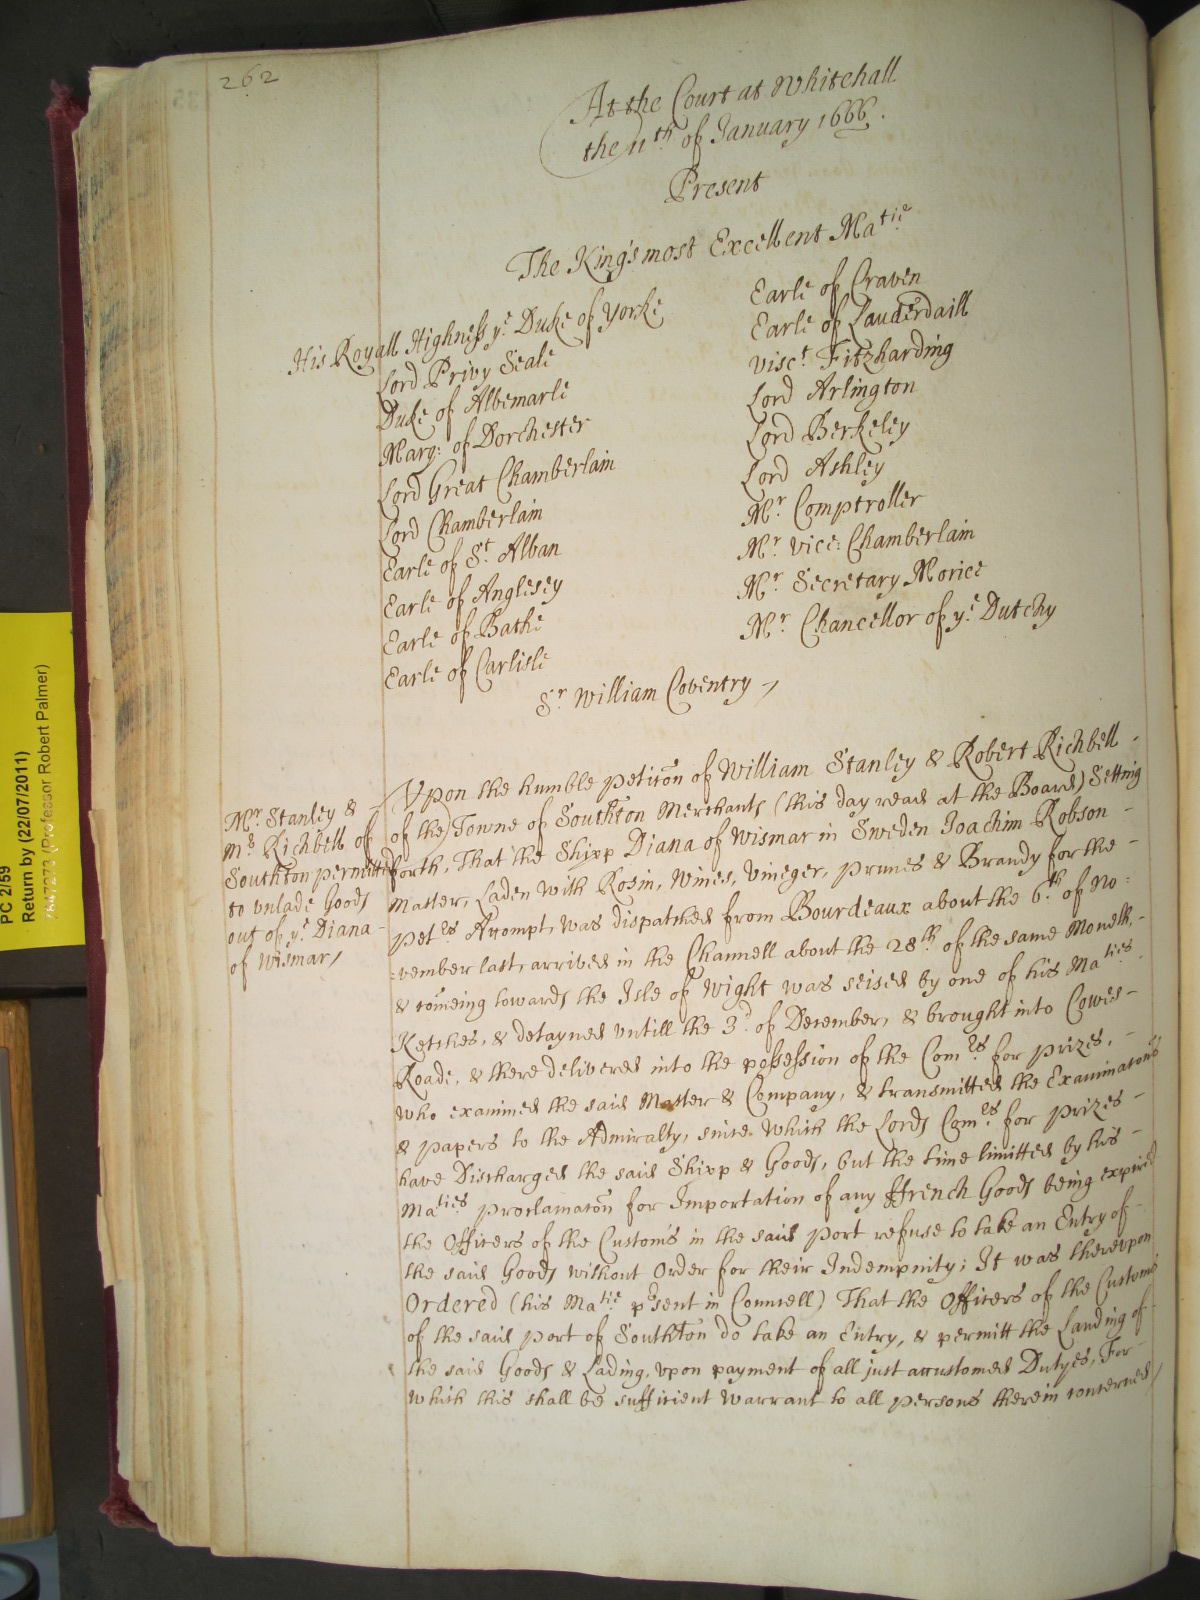 262
At the Court at Whitehall
the 11th of January 1666.
Present
The Kings most Excellent Matie
His Royall Highness ye Duke of Yorke
Lord Privy Seale
Duke of Albemarle
Marq: of Dorchester
Lord Great Chamberlain
Lord Chamberlain
Earle of St Alban
Earle of Anglesey
Earle of Bathe
Earle of Carlisle
Earle of Craven
Earle of Lauderdaill
Visct Fitzharding
Lord Arlington
Lord Berkeley
Lord Ashley
Mr Comptroller
Mr Vice: Chamberlain
Mr Secretary Morice
Mr Chancellor of ye Dutchy
Sr William Coventry
Mr Stanley &
Mr Richbell of
Southton permitted
to vnlade Goods
out of ye Diana
of Wismar
Vpon the humble peticōn of William Stanley & Robert Richbell
of the Towne of Southton Merchants (this day read at the Board) Setting
forth, That the Shipp Diana of Wismar in Sweden Joachim Robson
Master, Laden with Rosin, Wines, Vineger, Prunes & Brandy for the
petrs Accompt, was dispatched from Bourdeaux about the 6th of No:
:vember last, arrived in the Channell about the 28th of the same Moneth,
& comeing towards the Isle of Wight was seised by one of his Maties
Ketches, & detayned vntill the 3d of December, & brought into Cowes
Roade, & there delivered into the possession of the Comrs for Prizes,
who examined the said Master & Company, & transmitted the Examinatons
& papers to the Admiralty, since which the Lords Comrs for Prizes
have Discharged the said Shipp & Goods, but the time limitted by his
Maties Proclamacōn for Importation of any ffrench Goods being expired
the Officers of the Customs in the said Port refuse to take an Entry of
the said Goods without Order for their Indempnity; It was therevpon
Ordered (his Matie prsent in Councell) That the Officers of the Customs
of the said port of Southton do take an Entry, & permitt the Landing of
the said Goods & Lading, vpon payment of all just accustomed Dutyes, For
which this shall be sufficient Warrant to all persons therein concerned
PC 2/59
Return by (22/07/2011)
(Professor Robert Palmer)